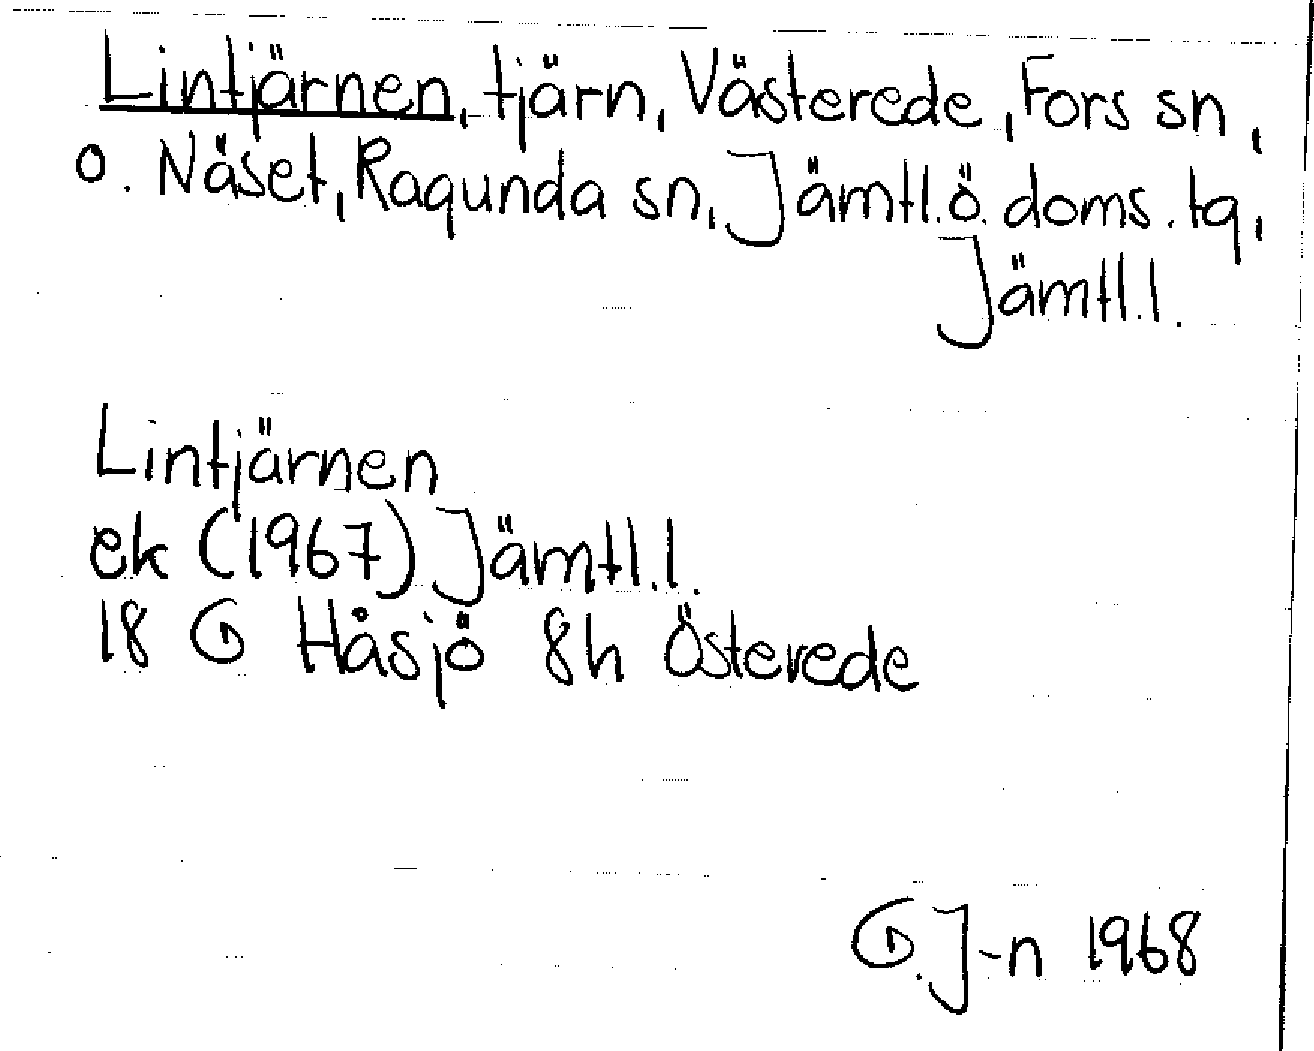 Lintjärnen, tjärn, Västerede, Fors sn,
o. Näset, Ragunda sn, Jämtl.ö. doms. tg,
Jämtl.l.
Lintjärnen
ek (1967) Jämtl.l.
18 G Håsjö 8h Österede
G.J-n 1968